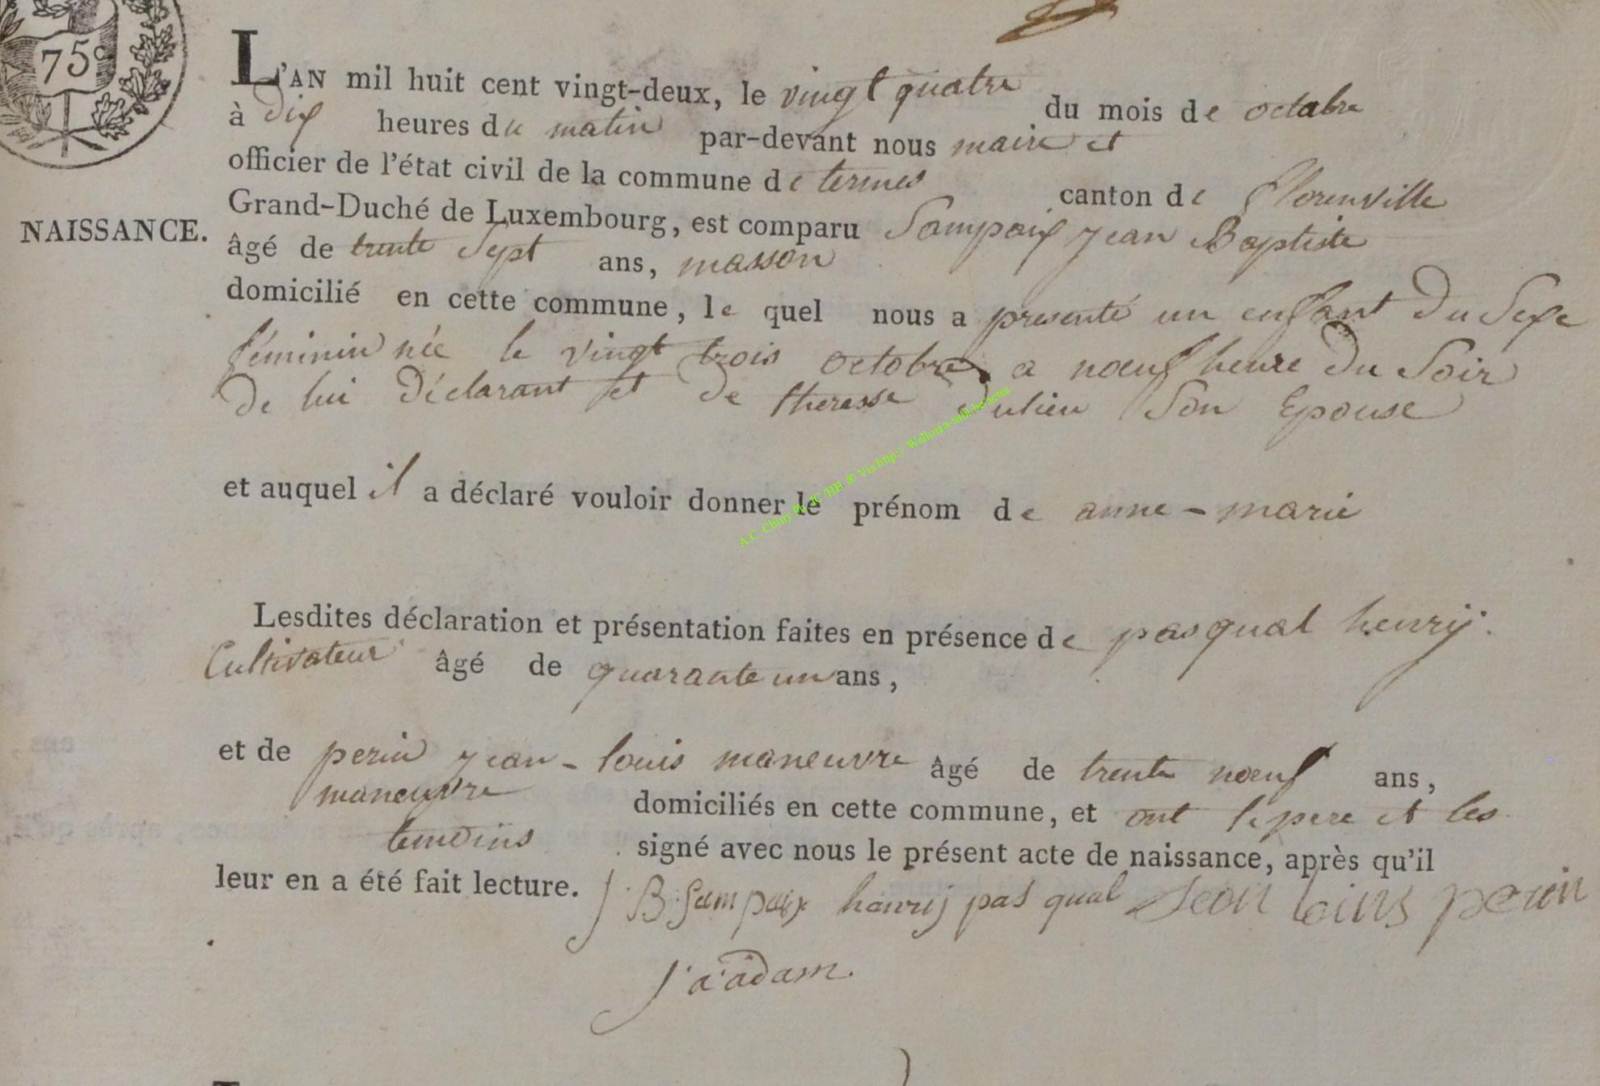 75c
L'AN mil huit cent vingt-deux, le vingt quatre du mois de octobre
à dix heures du matin par-devant nous maire et
officier de l'état civil de la commune de termes canton de florenville
NAISSANCE.
Grand-Duché de Luxembourg, est comparu Sampaix jean Baptiste
âgé de trente Sept ans, masson
domicilié en cette commune, le quel nous a presenté un enfant Du Sexe
féminin née le vingt trois octobre a nœuf heure Du Soir
De lui Déclarant et De theresse Julien Son Epouse
et auquel il a déclaré vouloir donner le prénom de anne-marie
Lesdites déclaration et présentation faites en présence de pasqual henrÿ.
Cultivateur âgé de quarante un ans,
et de perin jean-louis maneuvre âgé de trente nœuf ans,
maneuvre domiciliés en cette commune, et ont le pere et les
temoins signé avec nous le présent acte de naissance, après qu'il
leur en a été fait lecture. J.B. Sampaix henrij pasqual jean louis perin
J.a.adam.